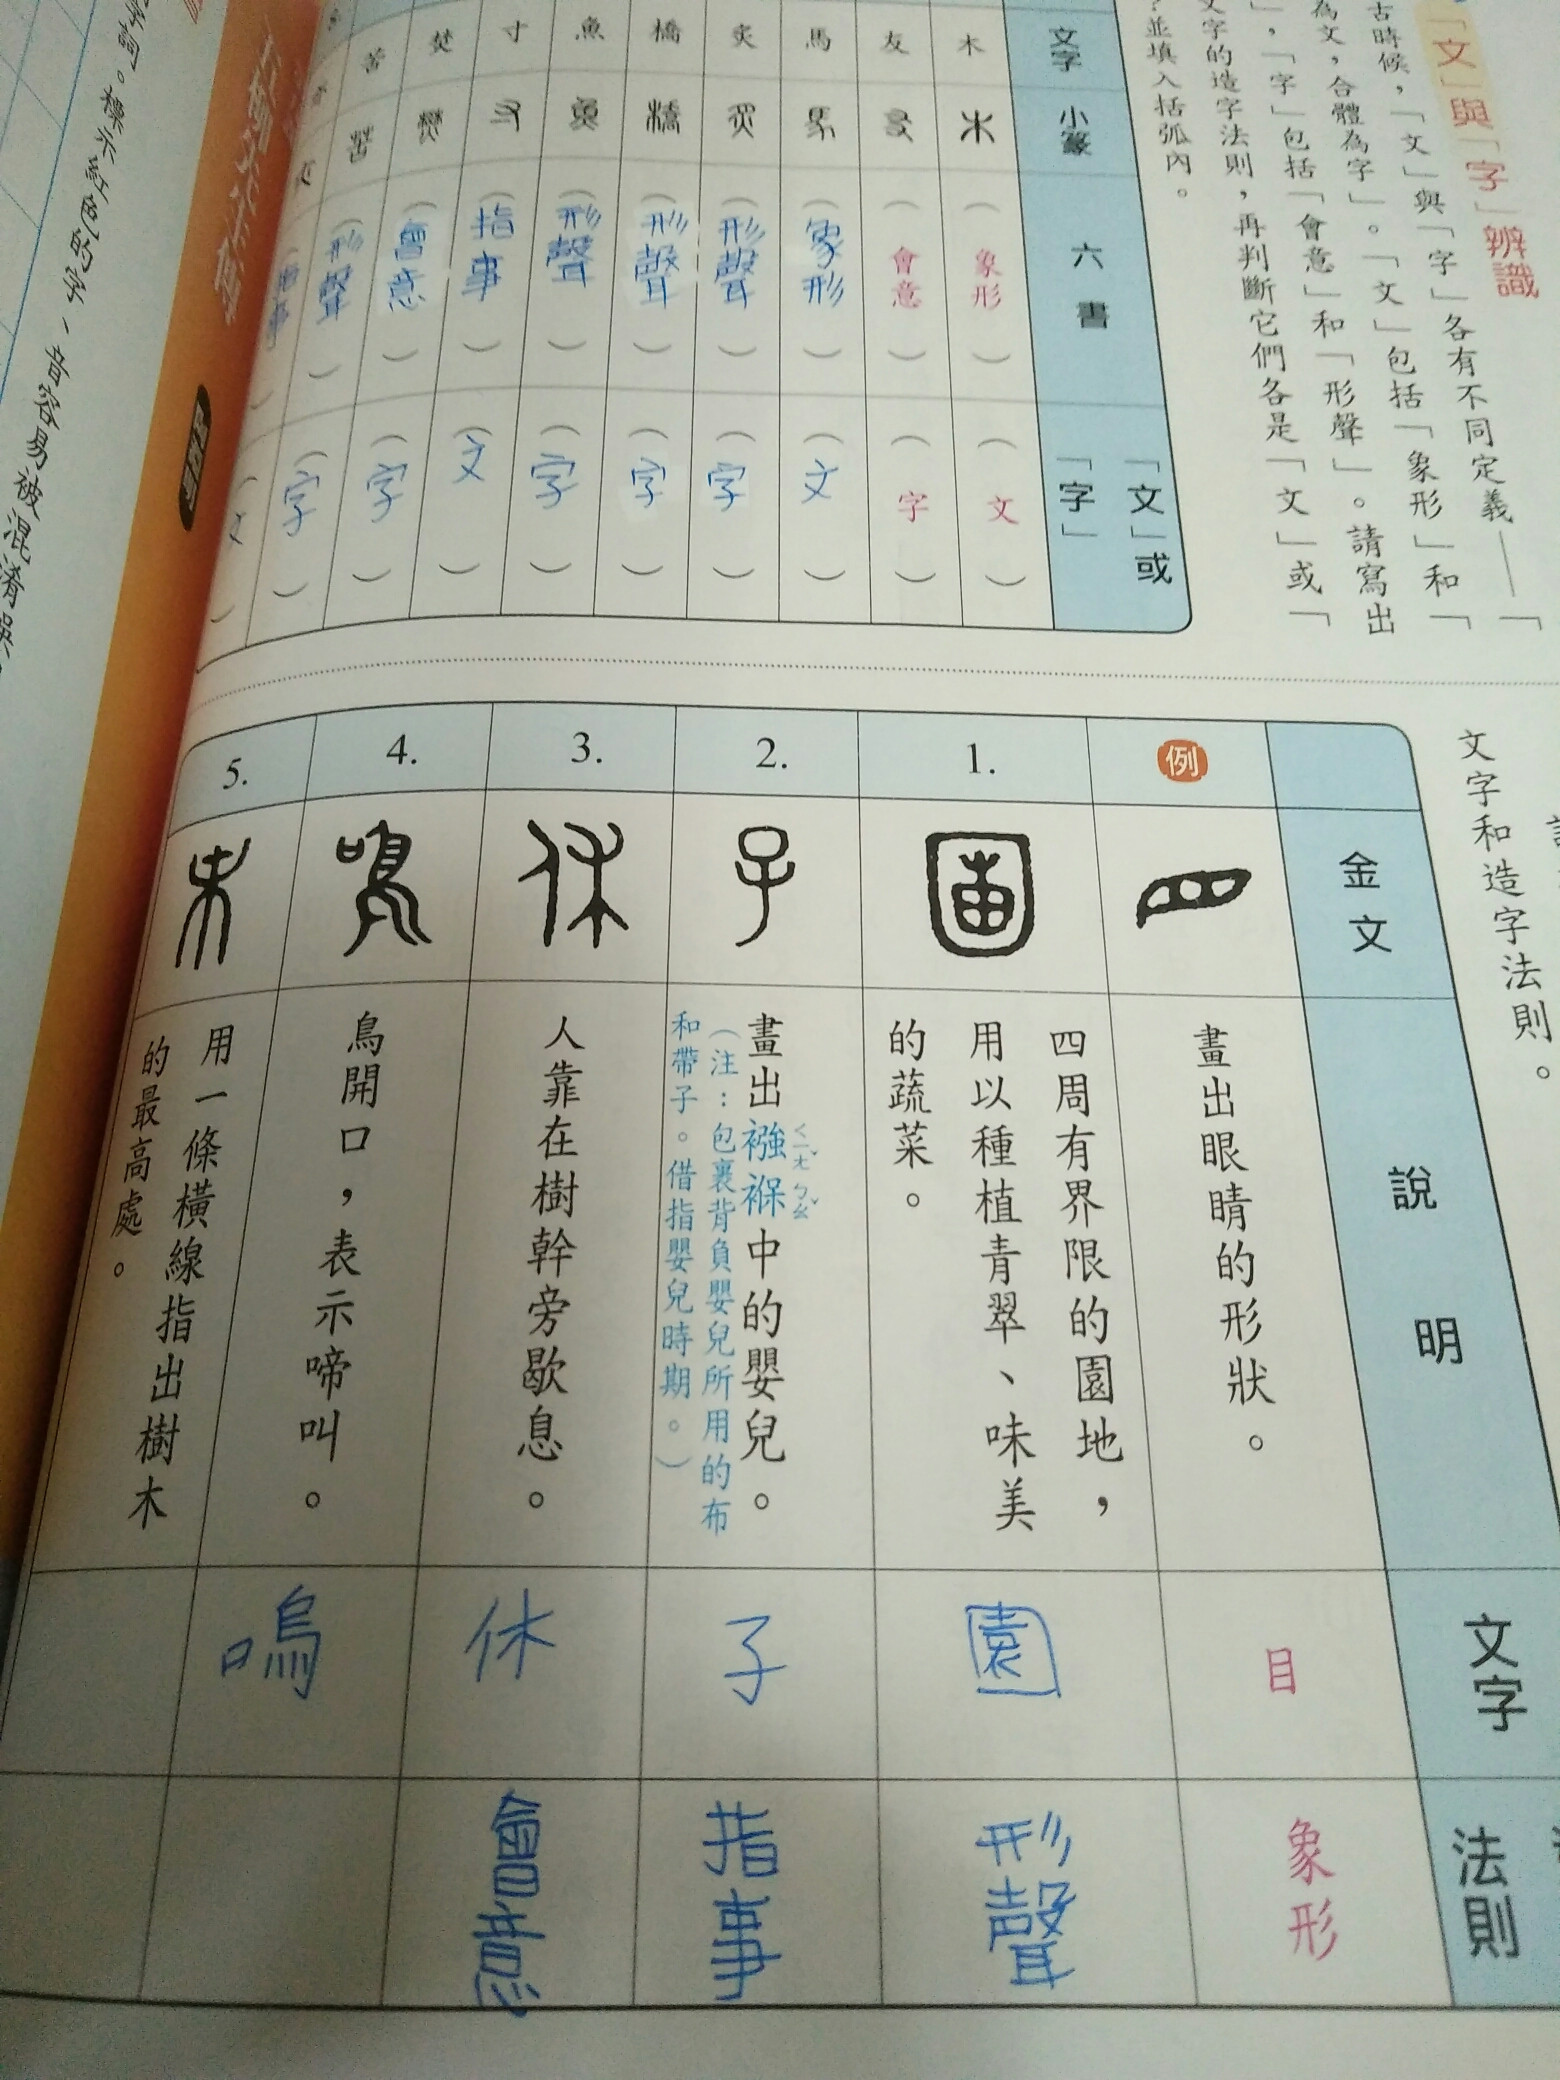 「文」與「字」辨識
古時候，「文」與「字」各有不同定義——「
為文，合體為字」。「文」包括「象形」和「
」，「字」包括「會意」和「形聲」。請寫出
文字的造字法則，再判斷它們各是「文」或「
？並填入括弧內。
文字
小篆
六書
「文」或「字」
木
（象形）
（文）
友
（會意）
（字）
馬
（象形）
（文）
炙
（形聲）
（字）
橋
（形聲）
（字）
魚
（形聲）
（字）
寸
（指事）
（文）
焚
（會意）
（字）
苦
（形聲）
（字）
（指事）
（文）
字詞。標示紅色的字、音容易被混淆誤
文字和造字法則。
金文
說明
文字
法則
例
畫出眼睛的形狀。
目
象形
1.
四周有界限的園地，
用以種植青翠、味美
的蔬菜。
園
形聲
2.
畫出襁褓中的嬰兒。
ㄑㄧㄤˇ ㄅㄠˇ
（注：包裹背負嬰兒所用的布
和帶子。借指嬰兒時期。）
子
指事
3.
人靠在樹幹旁歇息。
休
會意
4.
鳥開口，表示啼叫。
鳴
5.
用一條橫線指出樹木
的最高處。